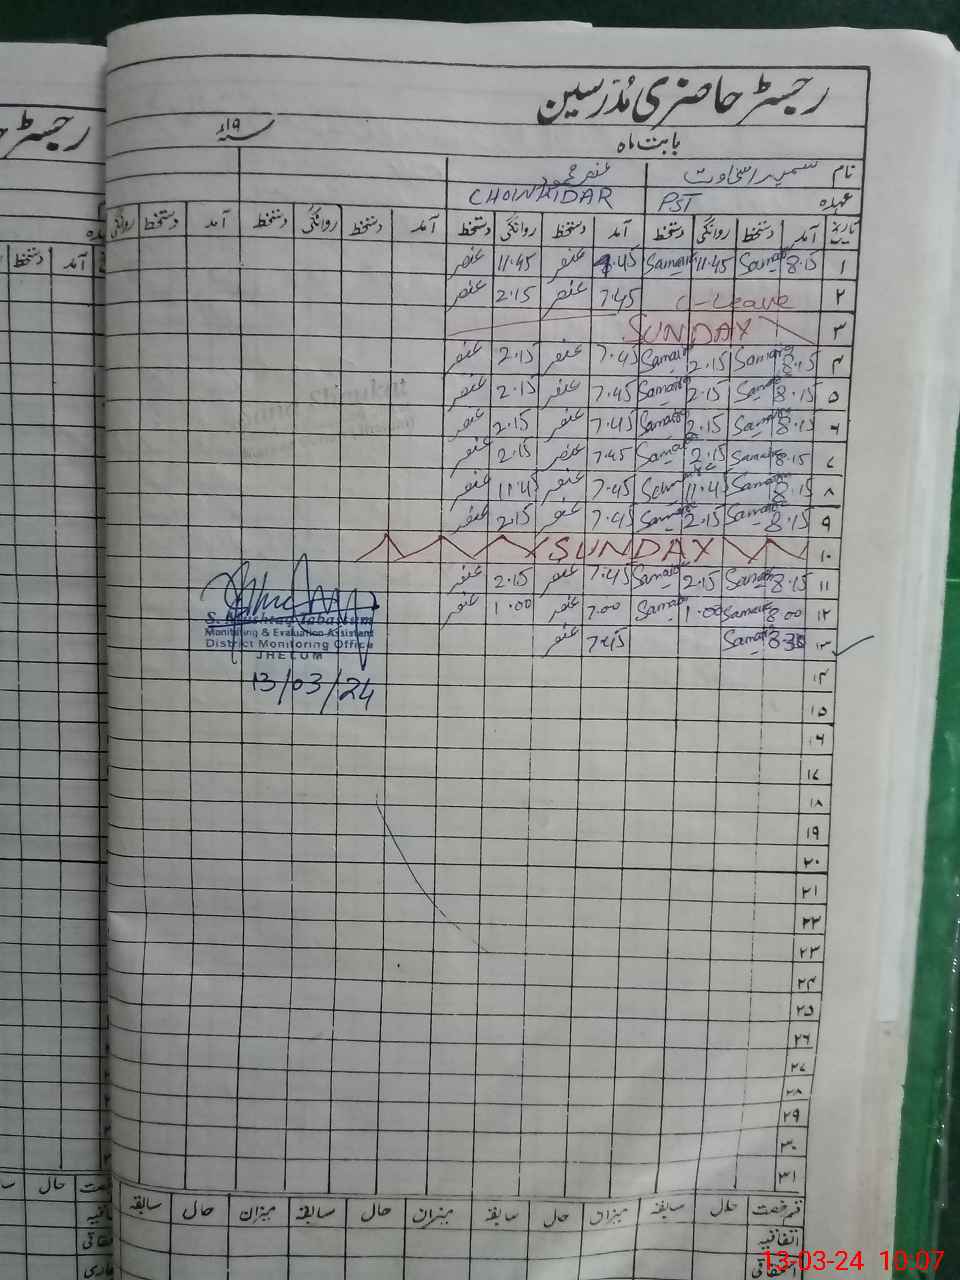 رجسٹر حاضری مُدرسین
بابت ماہ ۱۹ء
نام سمیرا سخاوت عنصر محمود
عہدہ PST CHOWKIDAR
تاریخ آمد دستخط روانگی دستخط آمد دستخط روانگی دستخط آمد دستخط روانگی دستخط آمد دستخط روانگی
۱ 8.15 Samaira 11.45 Samaira 7.45 عنصر 11.45 عنصر
۲ C-Leave 7.45 عنصر 2.15 عنصر
۳ SUNDAY
۴ 8.15 Samaira 2.15 Samaira 7.45 عنصر 2.15 عنصر
۵ 8.15 Samaira 2.15 Samaira 7.45 عنصر 2.15 عنصر
۶ 8.15 Samaira 2.15 Samaira 7.45 عنصر 2.15 عنصر
۷ 8.15 Samaira 2.15 Samaira 7.45 عنصر 2.15 عنصر
۸ 8.15 Samaira 11.45 Samaira 7.45 عنصر 11.45 عنصر
۹ 8.15 Samaira 2.15 Samaira 7.45 عنصر 2.15 عنصر
۱۰ SUNDAY
۱۱ 8.15 Samaira 2.15 Samaira 7.45 عنصر 2.15 عنصر
۱۲ 8.00 Samaira 1.00 Samaira 7.00 عنصر 1.00 عنصر
۱۳ 8.30 Samaira 7.45 عنصر
S. Mushtaq Tabassum
Monitoring & Evaluation Assistant
District Monitoring Office
JHELUM
13/03/24
۱۴
۱۵
۱۶
۱۷
۱۸
۱۹
۲۰
۲۱
۲۲
۲۳
۲۴
۲۵
۲۶
۲۷
۲۸
۲۹
۳۰
۳۱
رخصت حال سابقہ میزان حال سابقہ میزان حال سابقہ میزان حال سابقہ
اتفاقیہ
استحقاقی
13-03-24 10:07